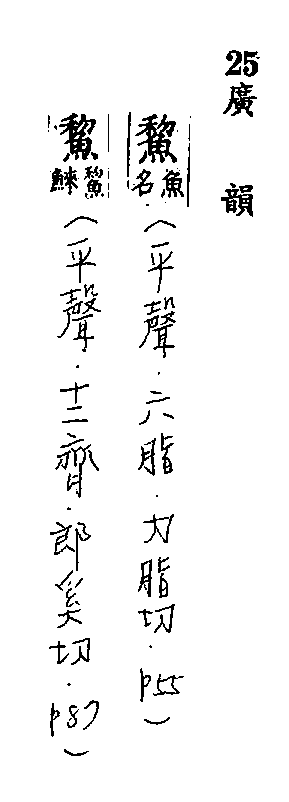 25 廣韻
鯬 魚名 (平聲·六脂·力脂切·p55)
鯬 鯬鯠 (平聲·十二齊·郎奚切·p87)